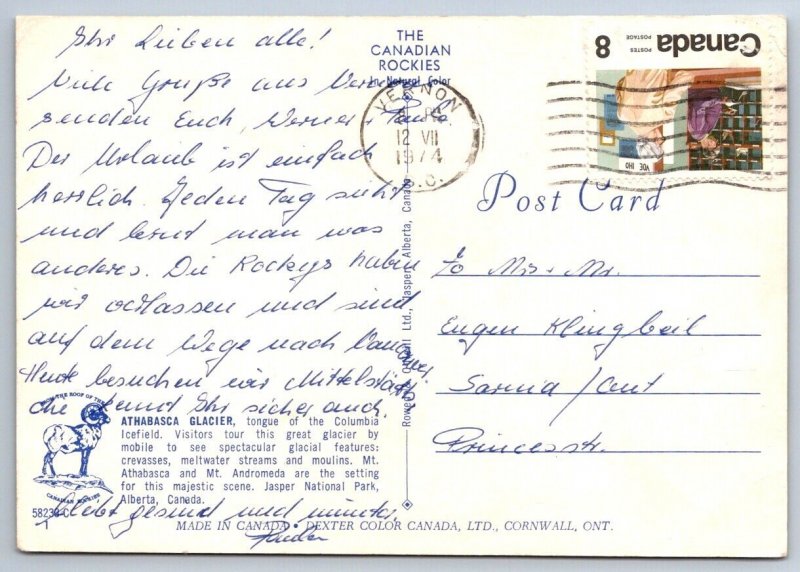 Ihr Lieben alle!
Viele Grüße aus
senden Euch, Werner + Paula.
Der Urlaub ist einfach
herrlich. Jeden Tag sieht
und lernt man was
anderes. Die Rockeys haben
wir verlassen und sind
auf dem Wege nach Vancouver.
Heute besuchen wir
die kennt Ihr sicher auch.
bleibt gesund und munter
THE
CANADIAN
ROCKIES
In Natural Color
VERNON
12 VII
1974
B.C.
8
POSTES
POSTAGE
Canada
Post Card
To Mrs + Mr.
Eugen Klingbeil
Sarnia / Ont
Princess str.
ATHABASCA GLACIER, tongue of the Columbia
Icefield. Visitors tour this great glacier by
mobile to see spectacular glacial features:
crevasses, meltwater streams and moulins. Mt.
Athabasca and Mt. Andromeda are the setting
for this majestic scene. Jasper National Park,
Alberta, Canada.
CANADIAN ROCKIES
MADE IN CANADA • DEXTER COLOR CANADA, LTD., CORNWALL, ONT.
Ltd., Jasper, Alberta, Canada